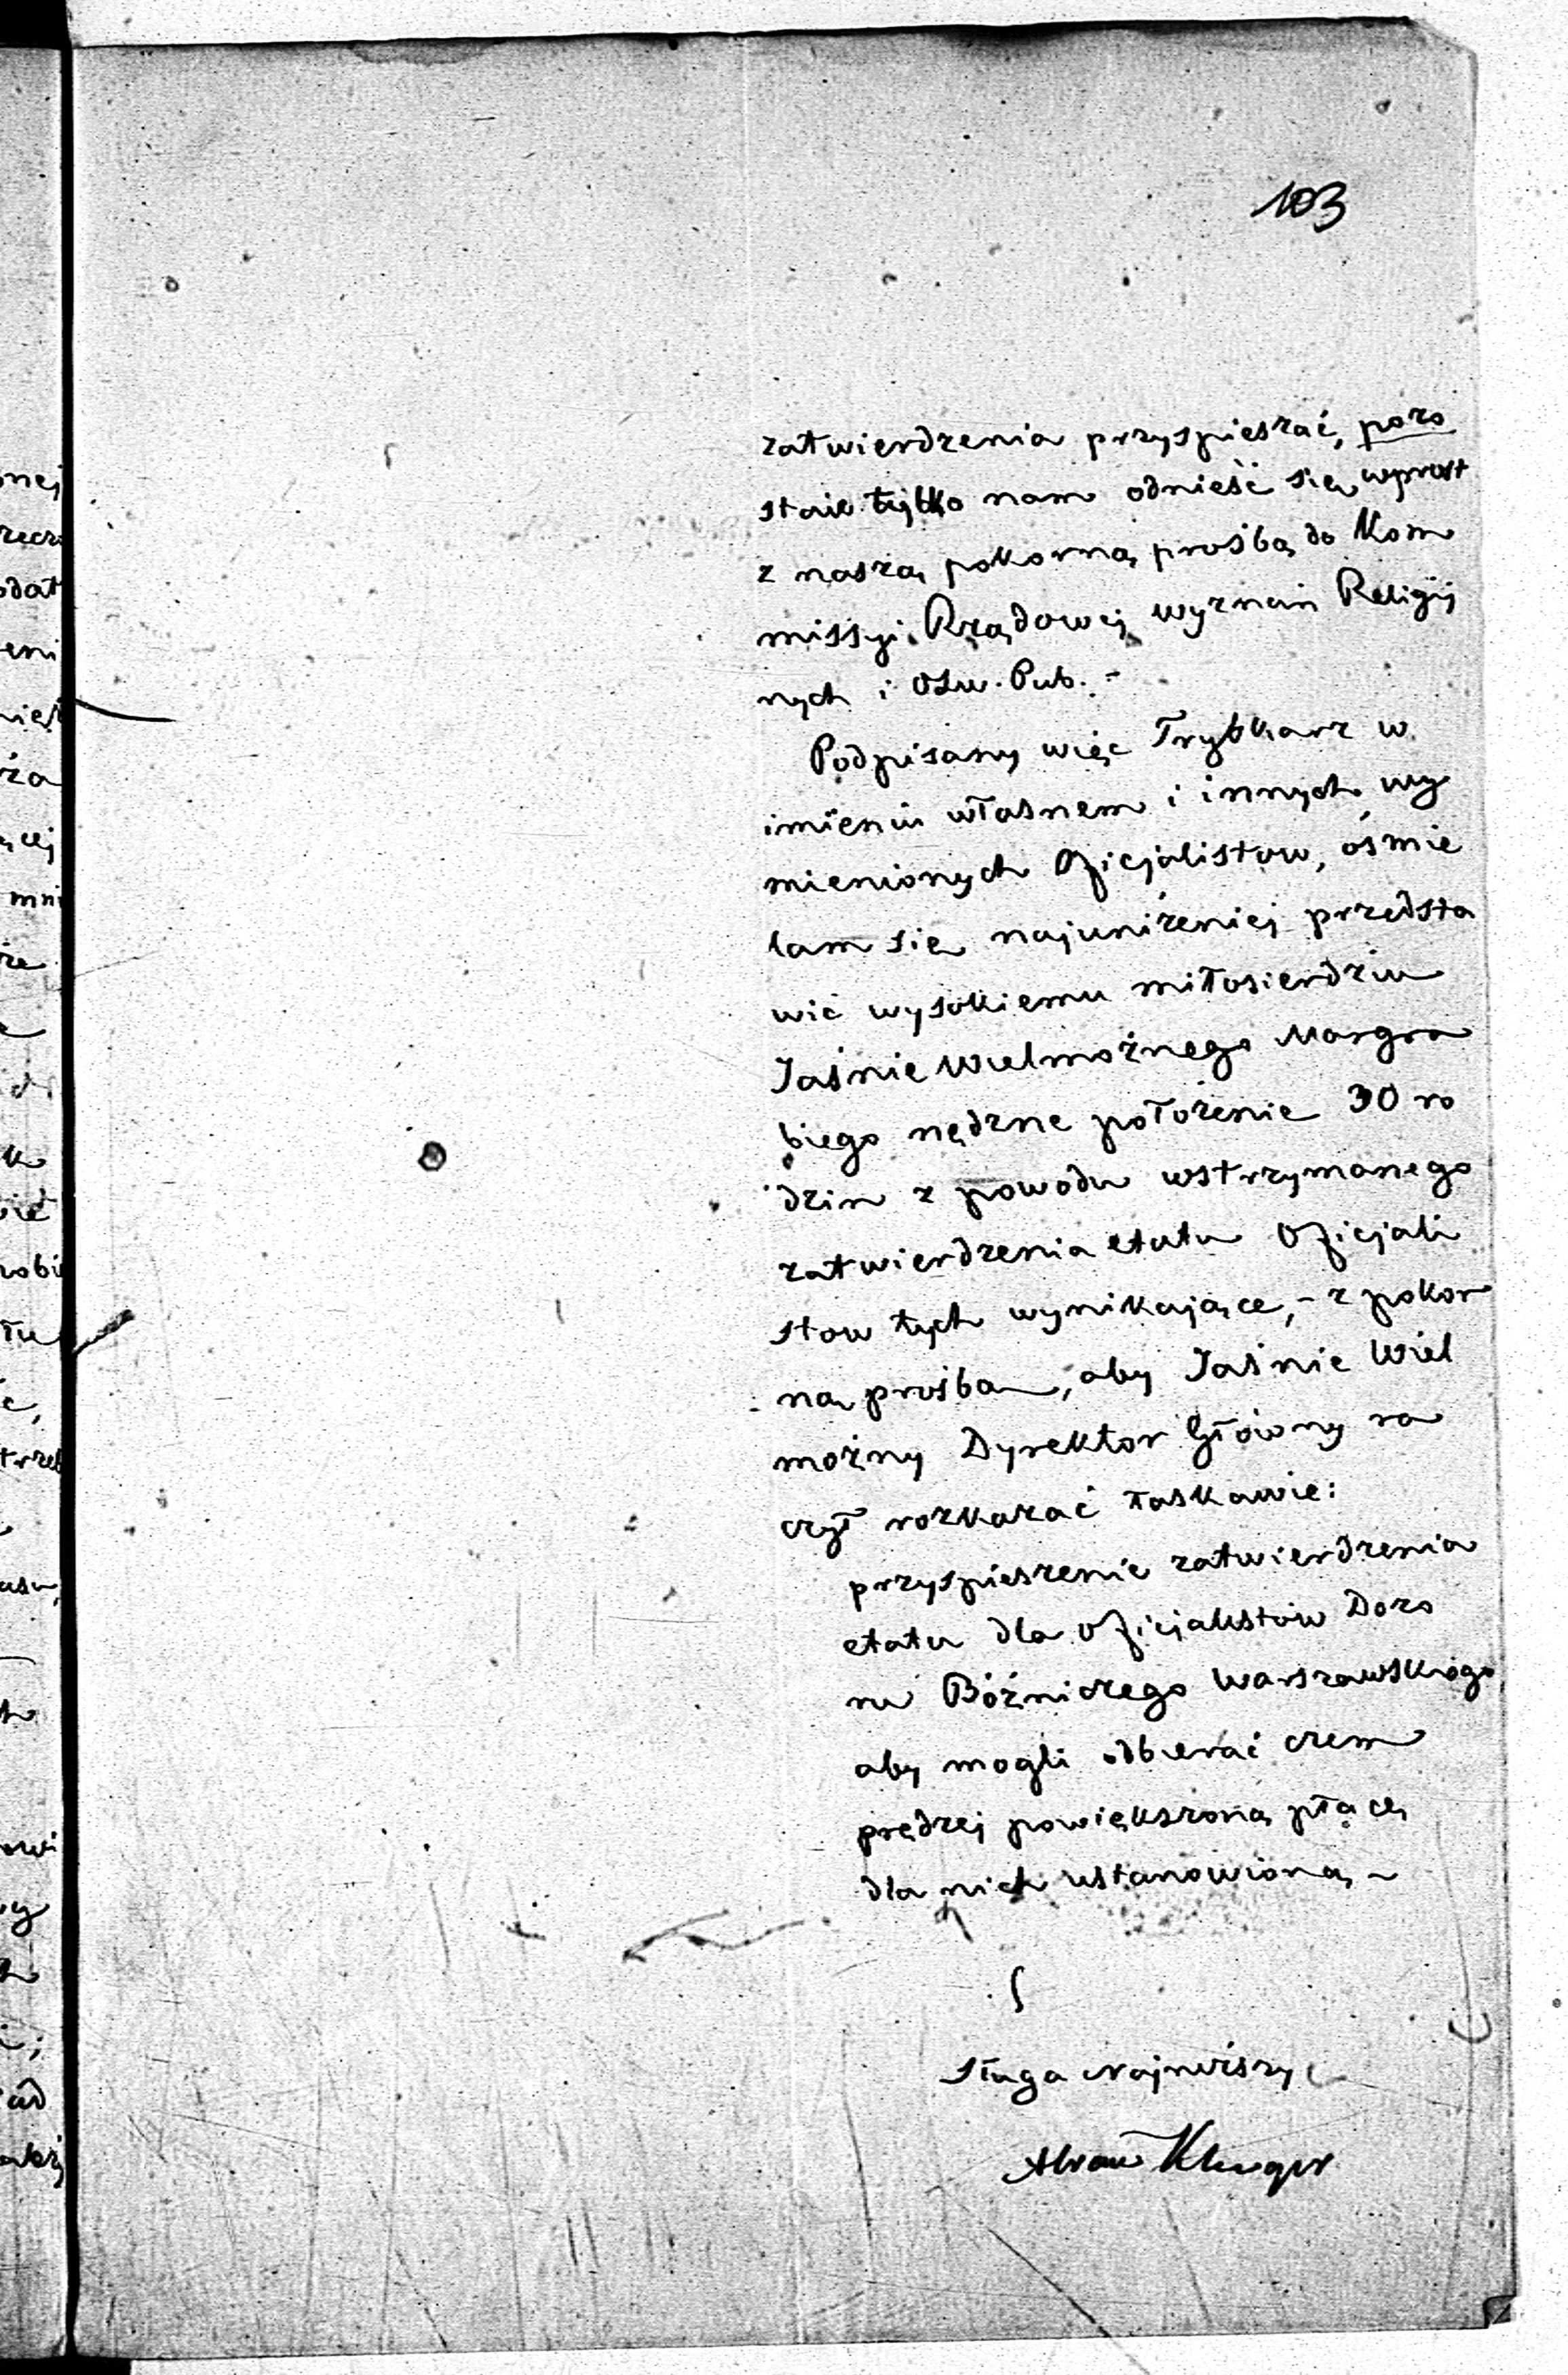 103
zatwierdzenia przyspieszać, pozo
staie tylko nam odnieść się wprost
z naszą pokorną prośbą do Kom
missyi Rządowej Wyznań Religij
nych i Ośw. Pub. -
Podpisany więc Trybkarz w
imieniu własnem i innych wy
mienionych Oficjalistow, ośmie
lam się najuniżeniej przedsta
wić wysokiemu miłosierdziu
Jaśnie Wielmożnego Margra
biego nędzne położenie 30 ro
dzin z powodu wstrzymanego
zatwierdzenia etatu Oficjali
stow tych wynikające, - z pokor
ną prośbą, aby Jaśnie Wiel
możny Dyrektor Główny ra
czył rozkazać łaskawie:
przyspieszenie zatwierdzenia
etatu dla Oficjalistów Dozo
ru Bóźniczego Warszawskiego,
aby mogli odbierać czem
prędzej powiększoną płacę
dla nich ustanowioną, -
Sługa Najniższy
Abram Kluger